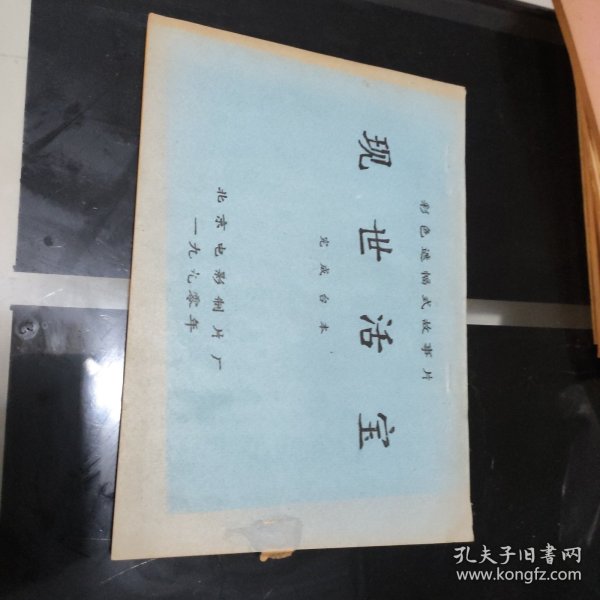 彩色遮幅式故事片
现世活宝
完成台本
北京电影制片厂
一九九零年
孔夫子旧书网
www.kongfz.com